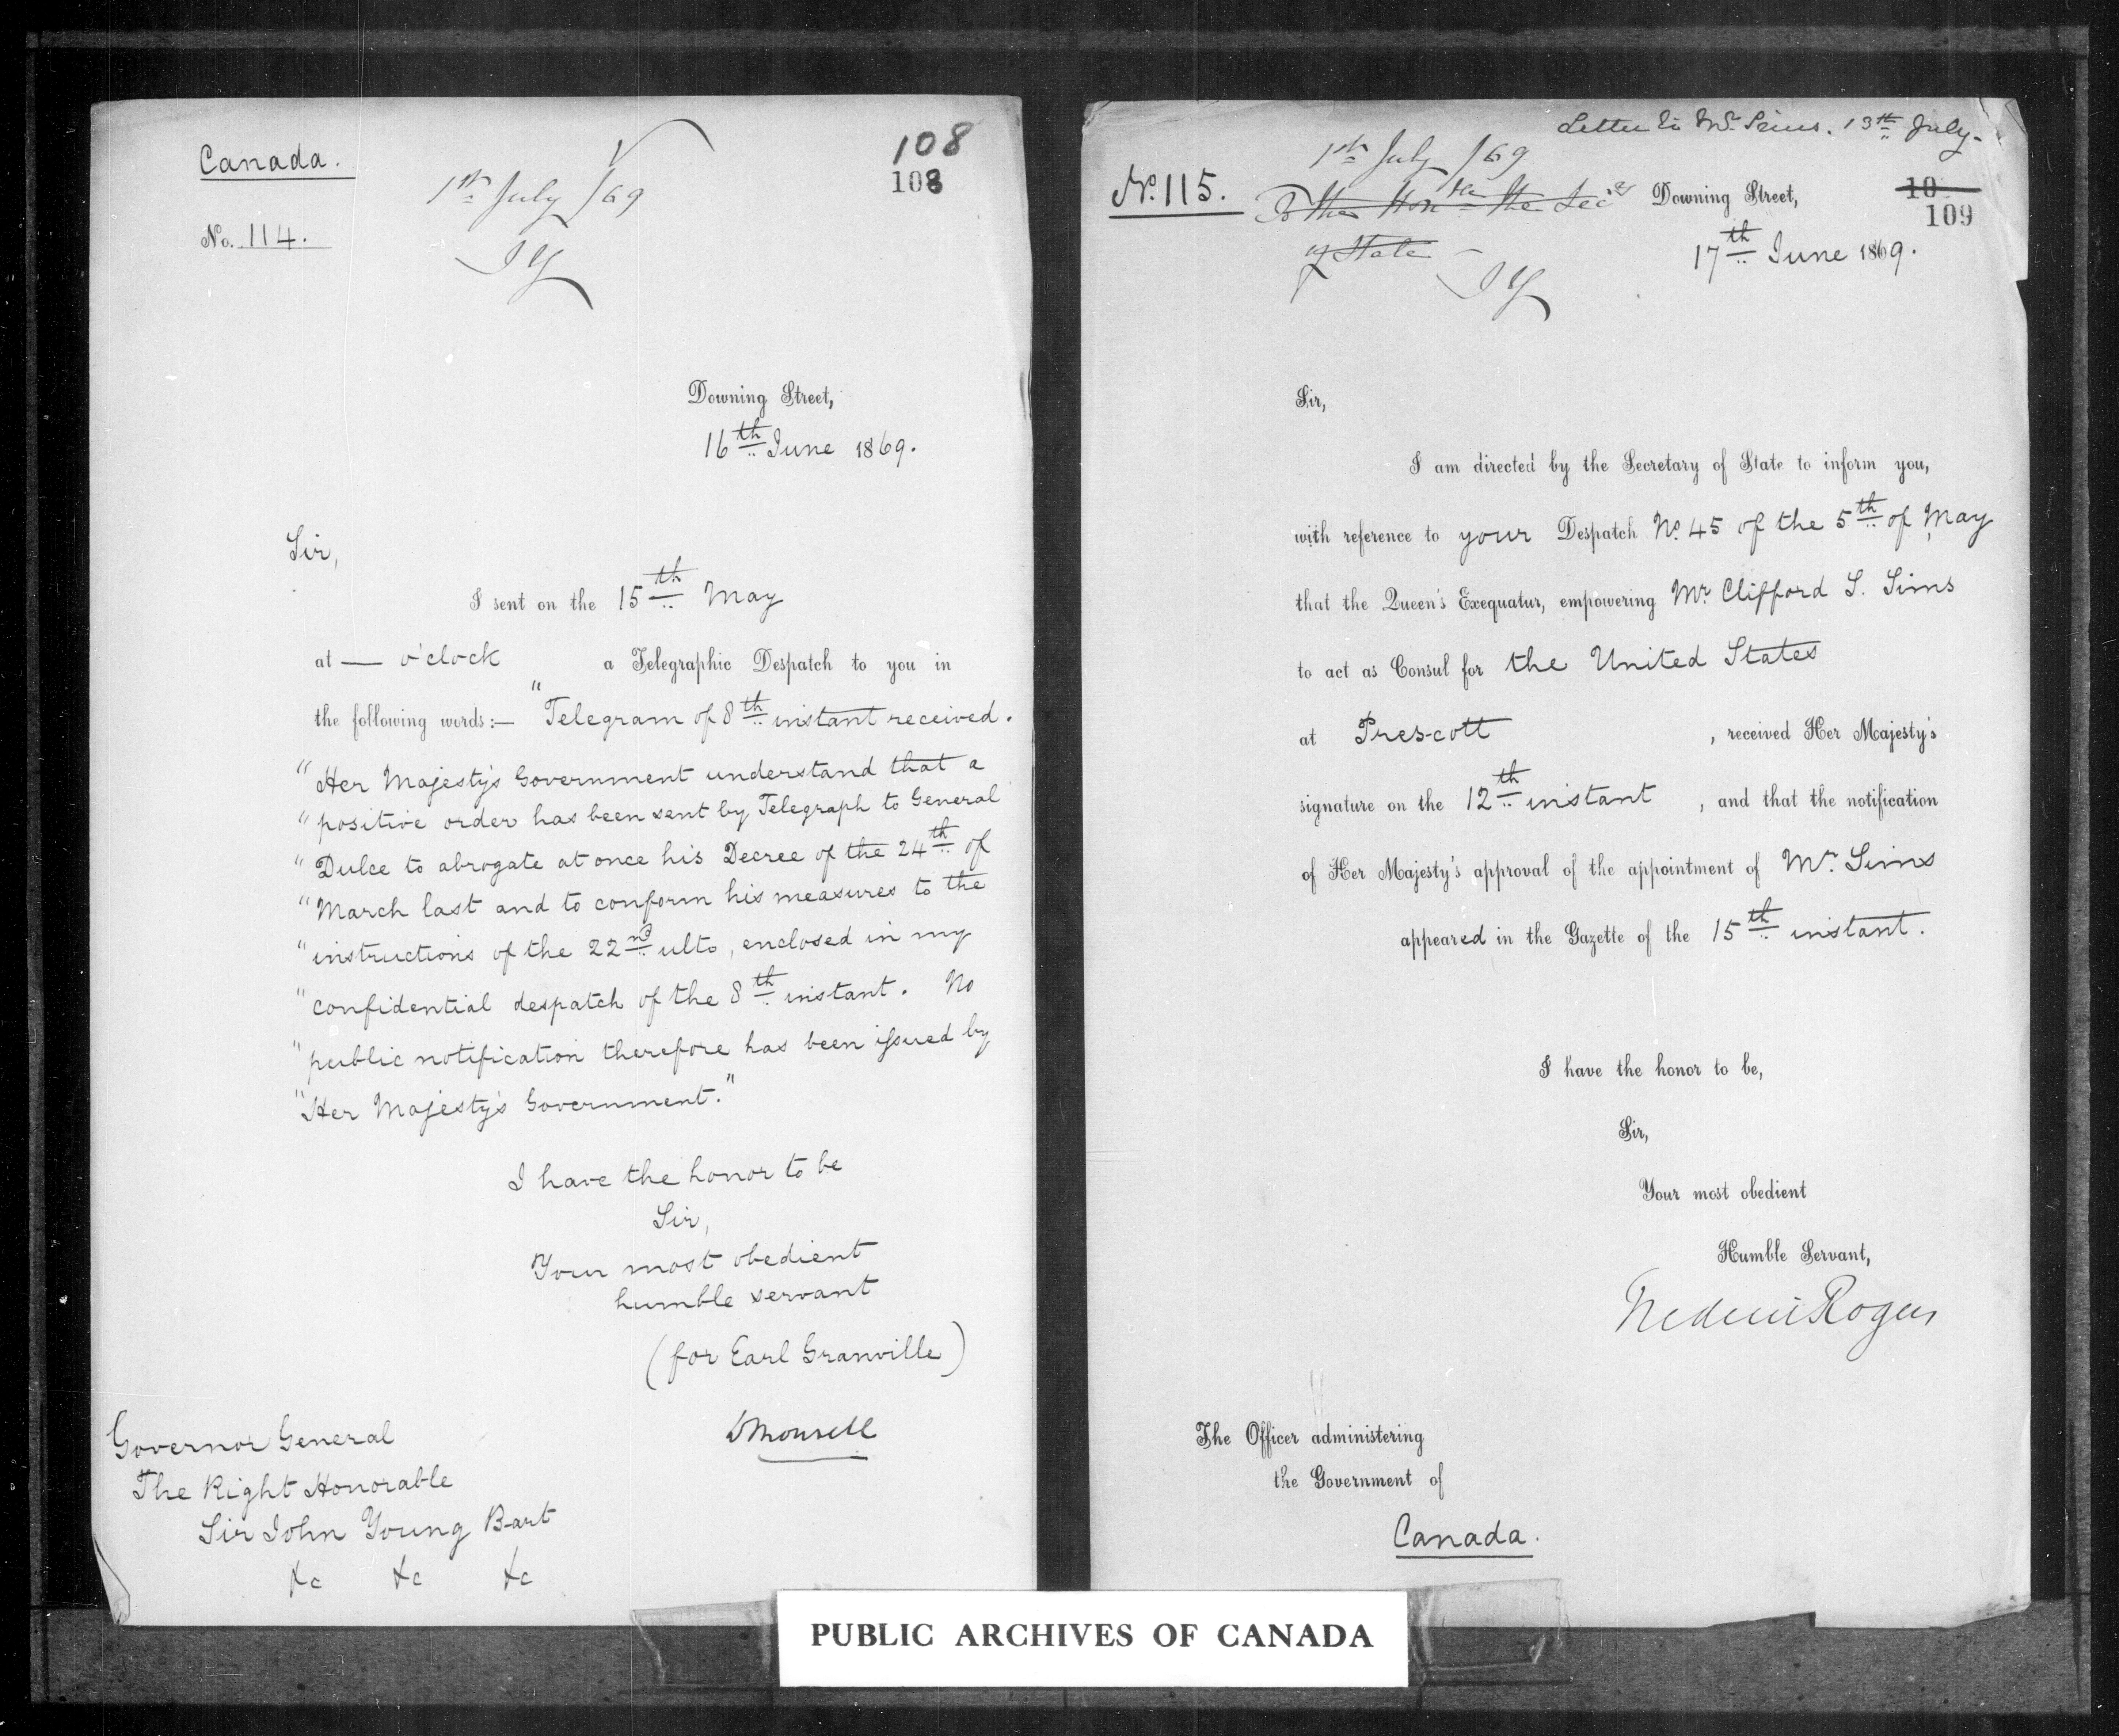 Canada.
108
108
1st July /69
No. 114.
JY
Downing Street,
16th June 1869.
Sir,
I sent on the 15th May
at — o'clock a Telegraphic Despatch to you in
the following words:— "Telegram of 8th instant received.
"Her Majesty's Government understand that a
"positive order has been sent by Telegraph to General
"Dulce to abrogate at once his Decree of the 24th of
"March last and to conform his measures to the
"instructions of the 22nd ulto, enclosed in my
"confidential despatch of the 8th instant. No
"public notification therefore has been issued by
"Her Majesty's Government."
I have the honor to be
Sir,
Your most obedient
humble servant
(for Earl Granville)
WMonsell
Governor General
The Right Honorable
Sir John Young Bart
&c &c &c
Letter to Mr. Sims. 13th July.
1st July /69
No. 115.
To the Honble the Secy
of State
JY
Downing Street,
10
109
17th June 1869.
Sir,
I am directed by the Secretary of State to inform you,
with reference to your Despatch No. 45 of the 5th of May
that the Queen's Exequatur, empowering Mr. Clifford S. Sims
to act as Consul for the United States
at Prescott , received Her Majesty's
signature on the 12th instant , and that the notification
of Her Majesty's approval of the appointment of Mr. Sims
appeared in the Gazette of the 15th instant.
I have the honor to be,
Sir,
Your most obedient
Humble Servant,
Frederic Rogers
The Officer administering
the Government of
Canada.
PUBLIC ARCHIVES OF CANADA